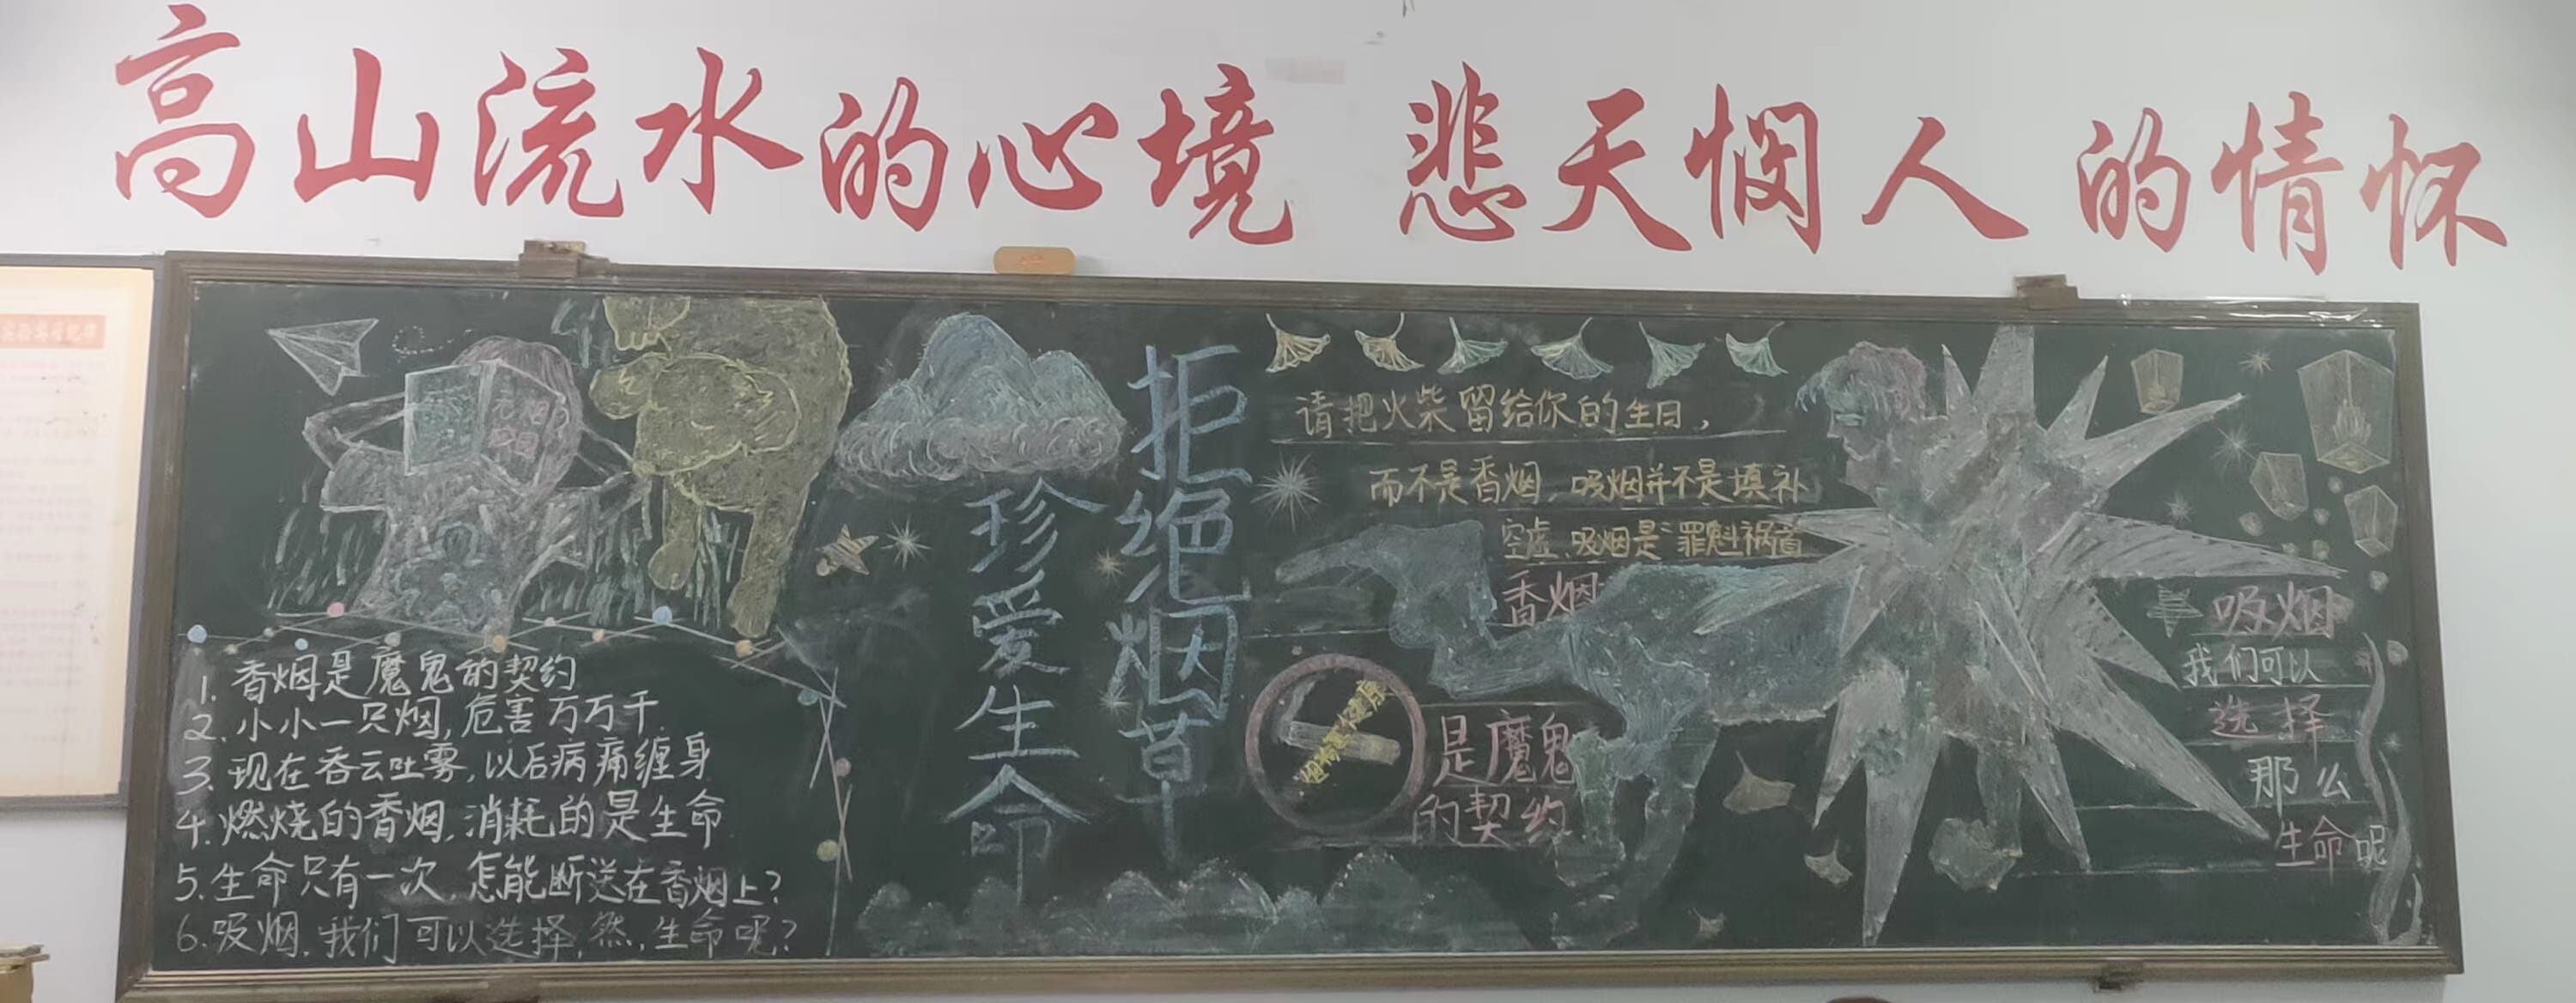 高山流水的心境 悲天悯人的情怀
1. 香烟是魔鬼的契约
2. 小小一只烟, 危害万万千
3. 现在吞云吐雾, 以后病痛缠身
4. 燃烧的香烟, 消耗的是生命
5. 生命只有一次, 怎能断送在香烟上?
6. 吸烟, 我们可以选择, 然, 生命呢?
拒绝烟草
珍爱生命
请把火柴留给你的生日,
而不是香烟, 吸烟并不是填补
空虚, 吸烟是罪魁祸首
香烟
是魔鬼
的契约
吸烟
我们可以
选择
那么
生命呢